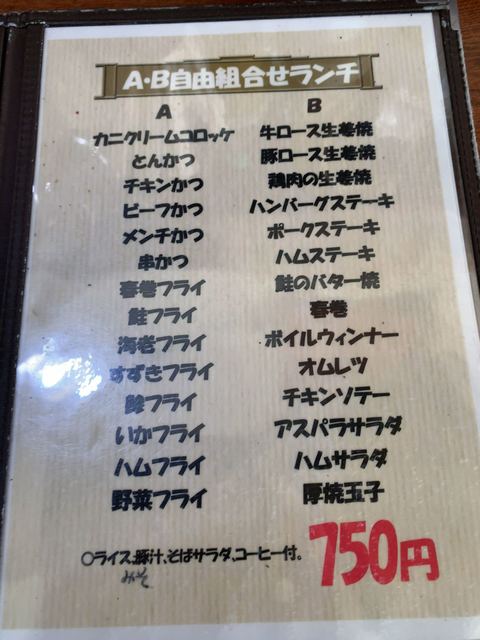 A・B自由組合せランチ
A
カニクリームコロッケ
とんかつ
チキンかつ
ビーフかつ
メンチかつ
串かつ
春巻フライ
鮭フライ
海老フライ
すずきフライ
鯵フライ
いかフライ
ハムフライ
野菜フライ
B
牛ロース生姜焼
豚ロース生姜焼
鶏肉の生姜焼
ハンバーグステーキ
ポークステーキ
ハムステーキ
鮭のバター焼
春巻
ボイルウィンナー
オムレツ
チキンソテー
アスパラサラダ
ハムサラダ
厚焼玉子
○ライス、豚汁、そばサラダ、コーヒー付。
みそ
750円